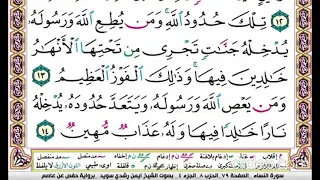 ١٢ تِلْكَ حُدُودُ اللَّهِ وَمَن يُطِعِ اللَّهَ وَرَسُولَهُ
يُدْخِلْهُ جَنَّاتٍ تَجْرِي مِن تَحْتِهَا الْأَنْهَارُ
خَالِدِينَ فِيهَا وَذَٰلِكَ الْفَوْزُ الْعَظِيمُ ١٣
وَمَن يَعْصِ اللَّهَ وَرَسُولَهُ وَيَتَعَدَّ حُدُودَهُ يُدْخِلْهُ
نَارًا خَالِدًا فِيهَا وَلَهُ عَذَابٌ مُّهِينٌ ١٤
سورة النساء الصفحة ٧٩ الحزب ٨ الجزء ٤ بصوت الشيخ ايمن رشدي سويد رواية حفص عن عاصم